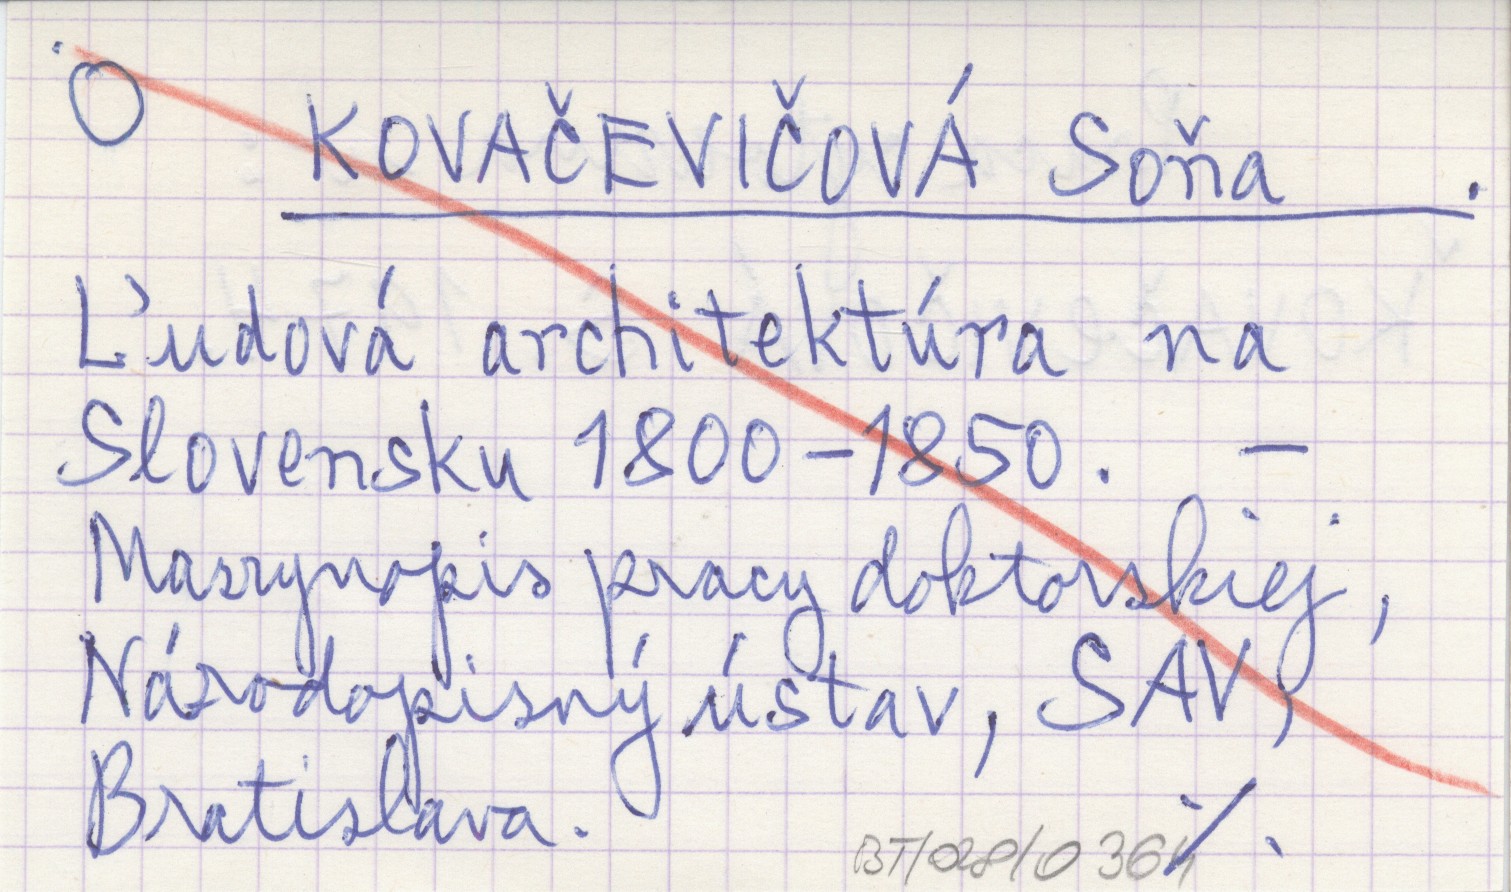 KOVAČEVIČOVÁ Soňa .
Ľudová architektúra na
Slovensku 1800-1850. —
Maszynopis pracy doktorskiej,
Národopisný ústav, SAV,
Bratislava. ./.
BT/028/0364